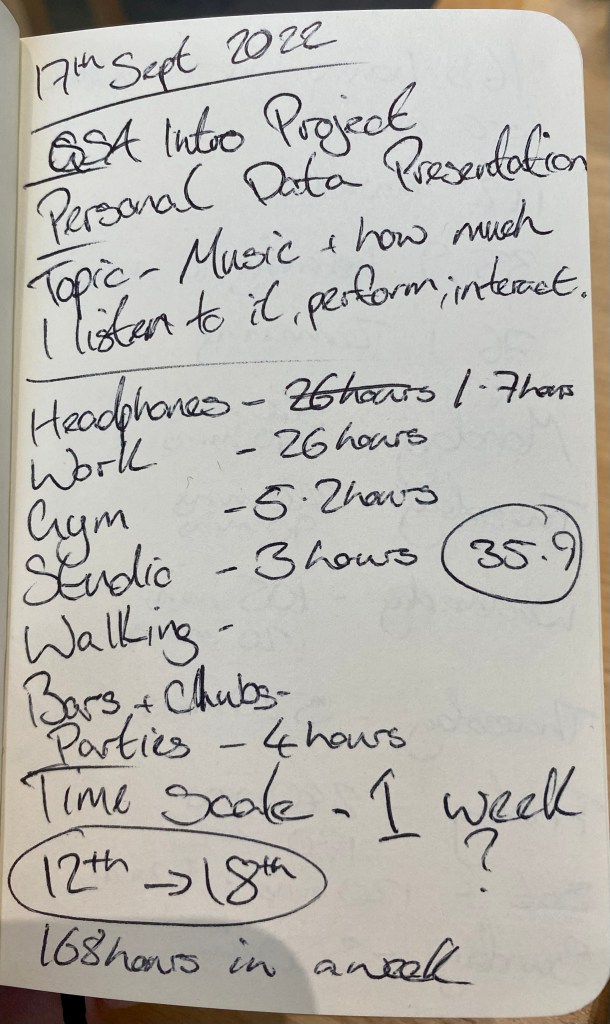 17th Sept 2022
GSA Intro Project
Personal Data Presentation
Topic - Music + how much
I listen to it, perform, interact.
Headphones - 26hours 1.7hours
Work - 26hours
Gym - 5.2hours
Studio - 3hours 35.9
Walking -
Bars + Clubs-
Parties - 4hours
Time Scale - 1 week
?
12th → 18th
168hours in a week